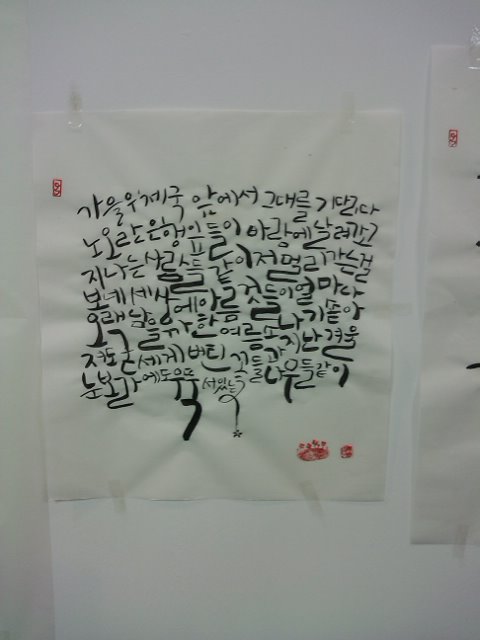 가을 우체국 앞에서 그대를 기다리다
노오란 은행잎들이 바람에 날려가고
지나는 사람들같이 저 멀리 가는걸
보네 세상에 아름 것들이 얼마나
오래 남을까 한 여름 소나기 쏟아
져도 굳세게 버틴 꽃들과 지난 겨울
눈보라에도 우뚝 서있는 나무들같이